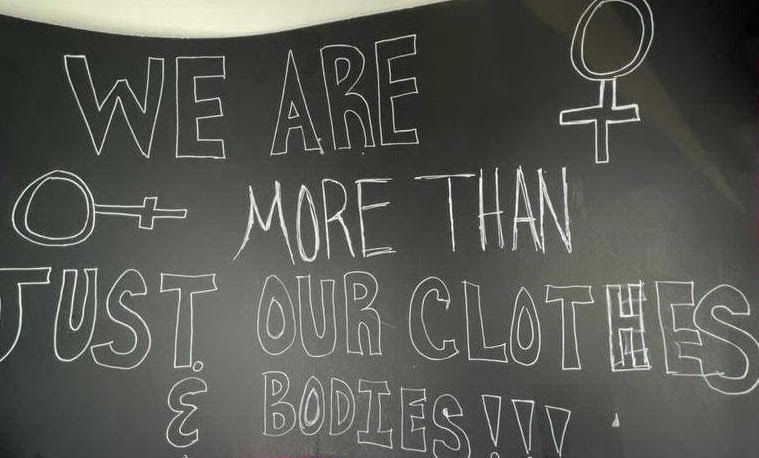 WE ARE
MORE THAN
JUST OUR CLOTHES
& BODIES!!!